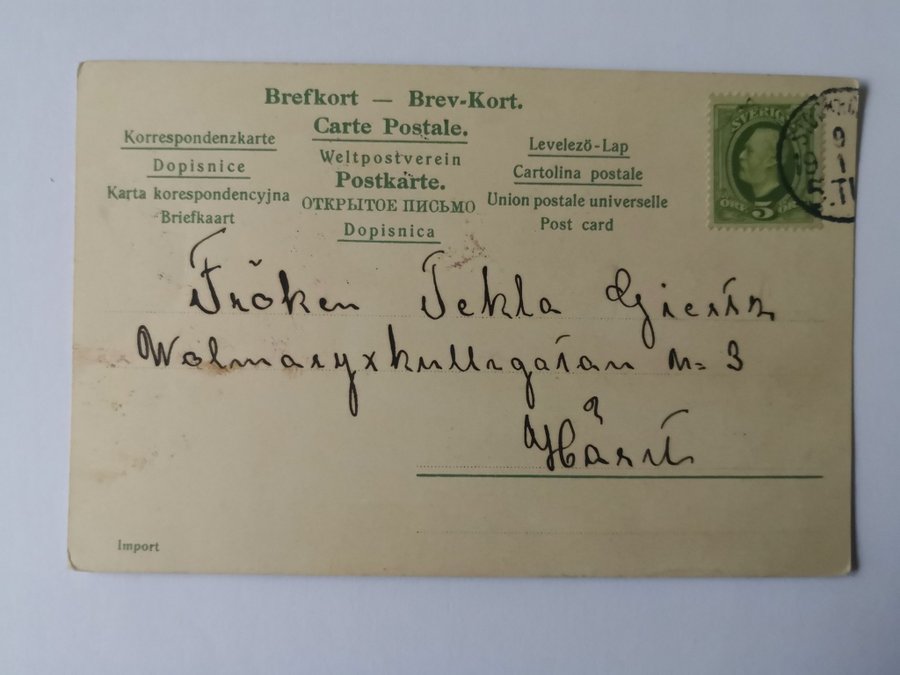 Brefkort — Brev-Kort.
Carte Postale.
Korrespondenzkarte
Weltpostverein
Levelező-Lap
Dopisnice
Postkarte.
Cartolina postale
Karta korespondencyjna
ОТКРЫТОЕ ПИСЬМО
Union postale universelle
Briefkaart
Dopisnica
Post card
SVERIGE
ÖRE 5
9
19 1
5.TU
Fröken Tekla
Wolmaryxkullsgatan N= 3
Härst.
Import